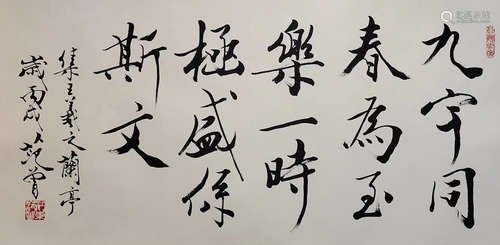 九宇同
春為至
樂一時
極盛係
斯文
集王羲之蘭亭
歲丙戌范曾